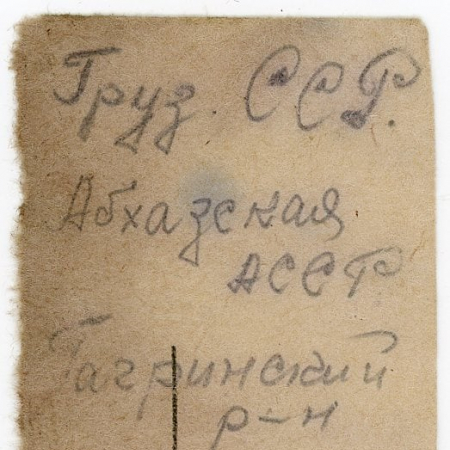 Груз. ССР.
Абхазская
АССР
Гагринский
р-н